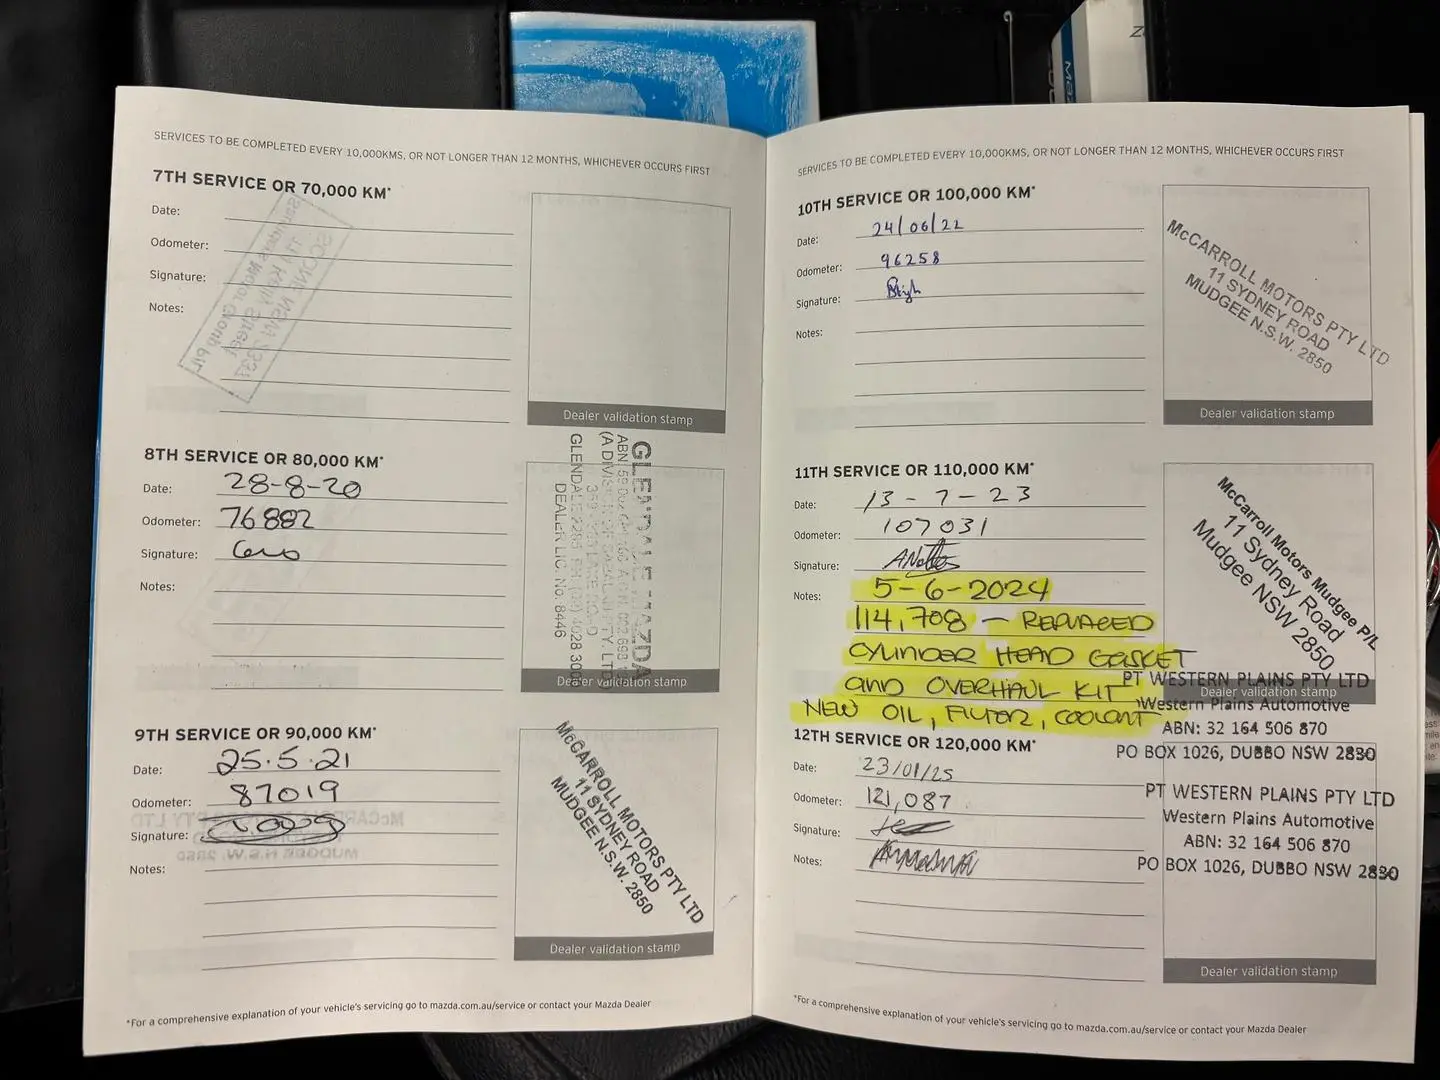 SERVICES TO BE COMPLETED EVERY 10,000KMS, OR NOT LONGER THAN 12 MONTHS, WHICHEVER OCCURS FIRST
7TH SERVICE OR 70,000 KM*
Date:
Odometer:
Signature:
Notes:
Dealer validation stamp
8TH SERVICE OR 80,000 KM*
Date: 28-8-20
Odometer: 76882
Signature:
Notes:
GLENDALE MAZDA
DEALER LIC. No. 8446
Dealer validation stamp
9TH SERVICE OR 90,000 KM*
Date: 25.5.21
Odometer: 87019
Signature:
Notes:
McCARROLL MOTORS PTY LTD
11 SYDNEY ROAD
MUDGEE N.S.W. 2850
Dealer validation stamp
*For a comprehensive explanation of your vehicle's servicing go to mazda.com.au/service or contact your Mazda Dealer
SERVICES TO BE COMPLETED EVERY 10,000KMS, OR NOT LONGER THAN 12 MONTHS, WHICHEVER OCCURS FIRST
10TH SERVICE OR 100,000 KM*
Date: 24/06/22
Odometer: 96258
Signature:
Notes:
McCARROLL MOTORS PTY LTD
11 SYDNEY ROAD
MUDGEE N.S.W. 2850
Dealer validation stamp
11TH SERVICE OR 110,000 KM*
Date: 13-7-23
Odometer: 107031
Signature:
Notes: 5-6-2024
114,708 - REPLACED
CYLINDER HEAD GASKET
AND OVERHAUL KIT
NEW OIL, FILTER, COOLANT
McCarroll Motors Mudgee P/L
11 Sydney Road
Mudgee NSW 2850
Dealer validation stamp
PT WESTERN PLAINS PTY LTD
Western Plains Automotive
ABN: 32 164 506 870
PO BOX 1026, DUBBO NSW 2830
12TH SERVICE OR 120,000 KM*
Date: 23/01/25
Odometer: 121,087
Signature:
Notes:
PT WESTERN PLAINS PTY LTD
Western Plains Automotive
ABN: 32 164 506 870
PO BOX 1026, DUBBO NSW 2830
Dealer validation stamp
*For a comprehensive explanation of your vehicle's servicing go to mazda.com.au/service or contact your Mazda Dealer